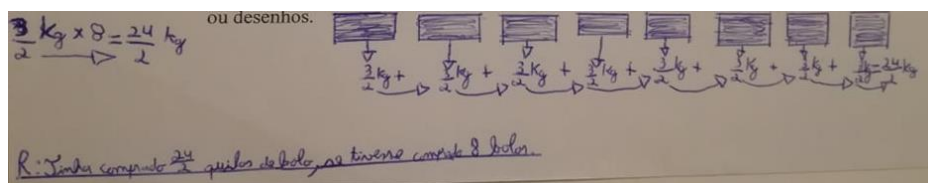 ou desenhos.
3/2 kg x 8 = 24/2 kg
3/2 kg + 3/2 kg + 3/2 kg + 3/2 kg + 3/2 kg + 3/2 kg + 3/2 kg + 3/2 kg = 24/2 kg
R: Tinha comprado 24/2 quilos de bolo, se tivesse comprado 8 bolos.